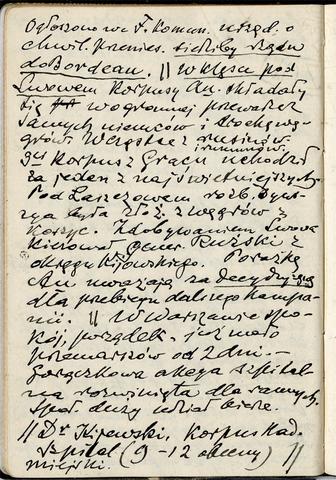 Ogłoszono we F. komun. urzęd. o
chwil. przenies. siedziby rządu
do Bordeau. || W klęsce pod
Lwowem korpusy Au. składały
się w ogromnej przewadze
samych niemców i trochę wę-
grów. Wreszcie rusinów
rumunów.
3ci Korpus z Gracu uchodził
za jeden z najświetniejszych.
Pod Laszczowem rozb. dywi-
zya była złoż. z węgrów z
Koszyc. Zdobywaniem Lwowa
kierował gener. Ruzski z
okręgu Kijowskiego. Porażkę
Au uważają za decydującą
dla przebiegu dalszego kampa-
nii. || W Warszawie spo-
kój, porządek, już mało
przemarszów od 2 dni. —
Gorączkowa akcya szpital-
na rozwinięta dla rannych.
Społ. duży udział bierze.
|| Dr Kijewski, Korpus Kad.
Szpital (9-12 obecny) ||
miejski.